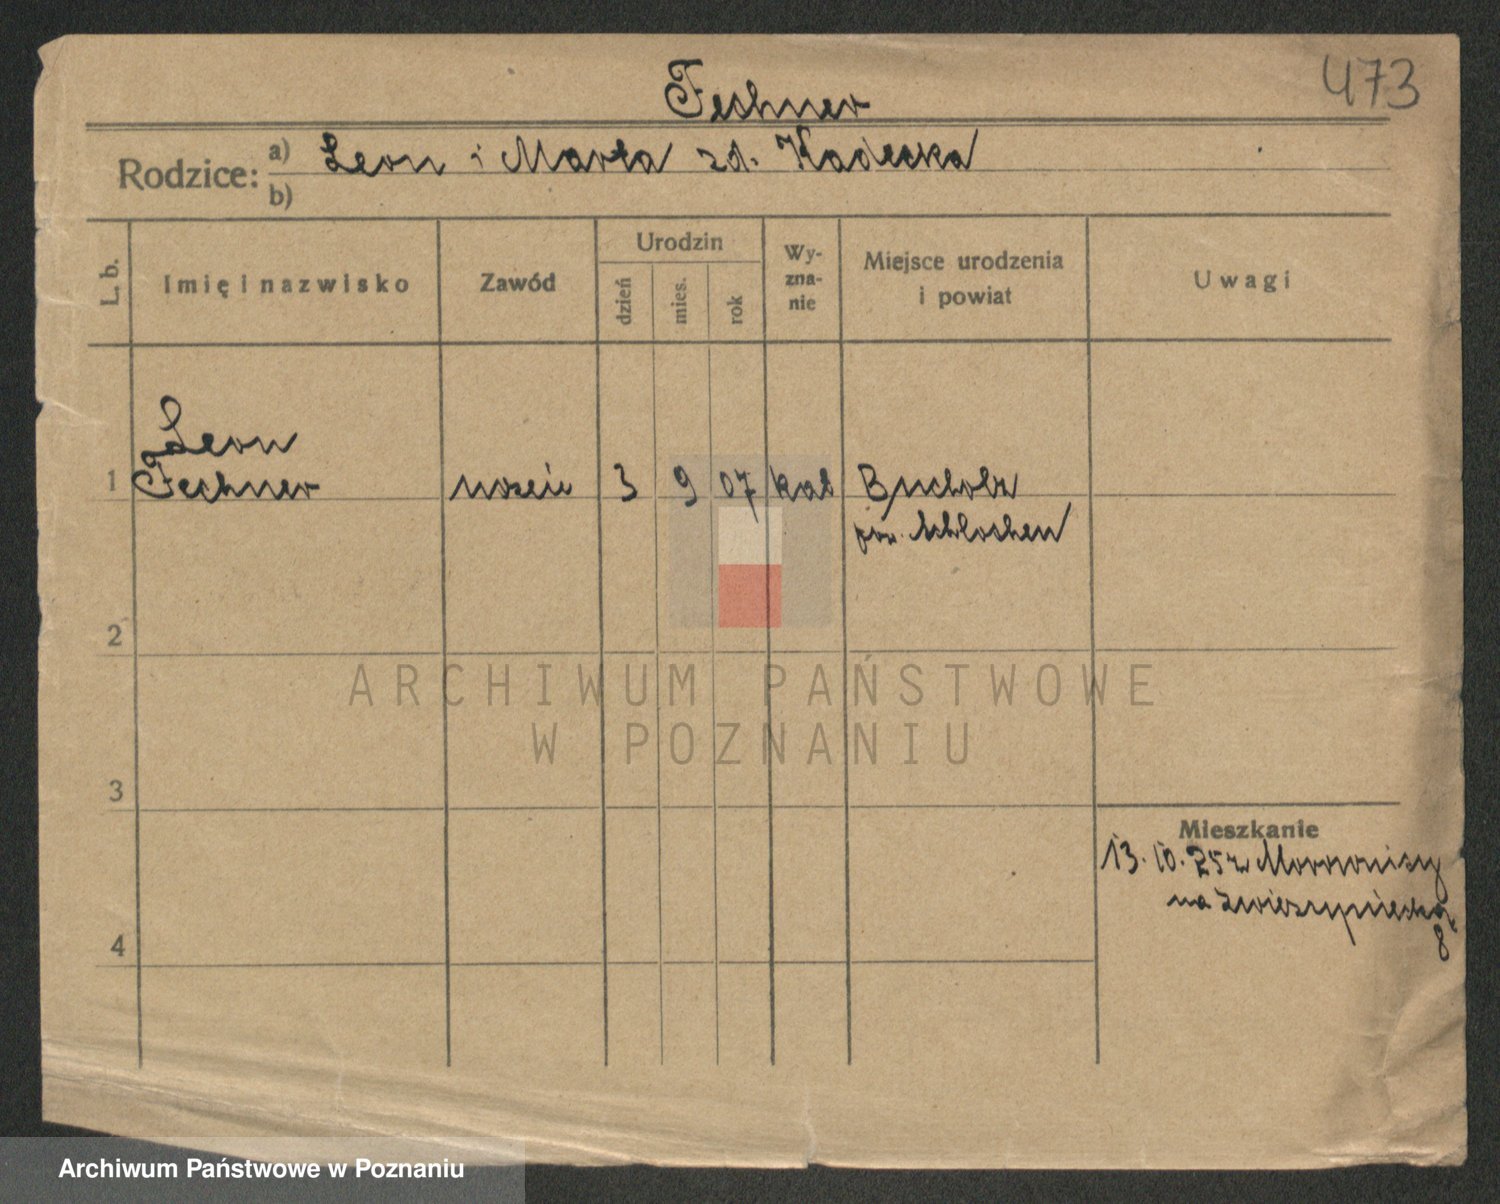 473
Fechner
Rodzice: a) Leon i Marta zd. Kadecka
b)
L. b. Imię i nazwisko Zawód Urodzin dzień mies. rok Wy-zna-nie Miejsce urodzenia i powiat Uwagi
Leon
1 Fechner uczeń 3 9 07 kat Bucholz
pow. Schlochen
2
ARCHIWUM PAŃSTWOWE
W POZNANIU
3
Mieszkanie
13. 10. 25 z
na Zwierzyniecką
8
4
Archiwum Państwowe w Poznaniu